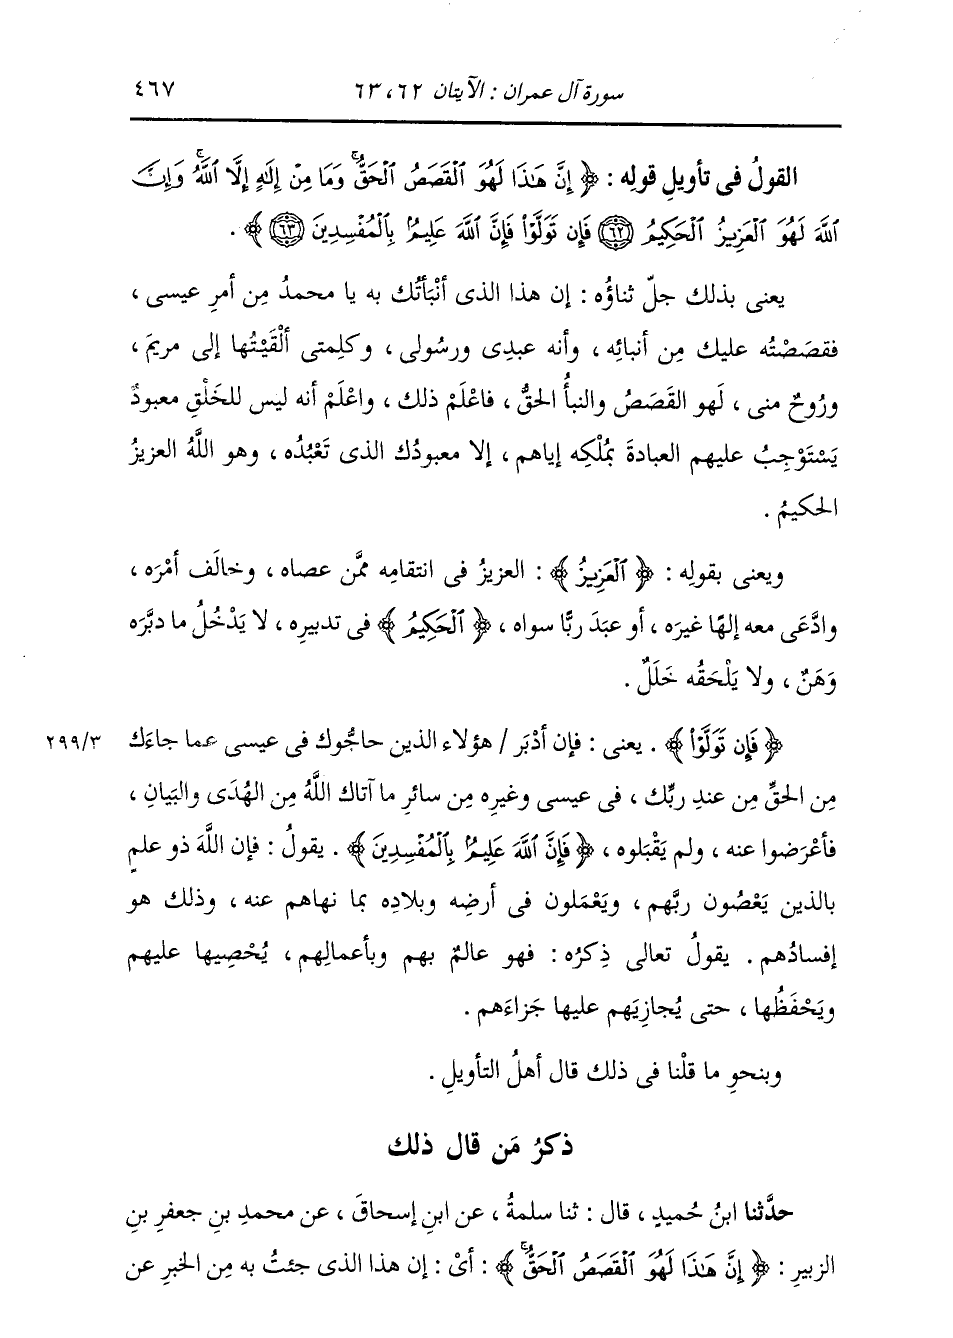 سورة آل عمران : الآيتان ٦٢ ، ٦٣ ٤٦٧
القولُ فى تأويلِ قولِه : ﴿ إِنَّ هَٰذَا لَهُوَ ٱلْقَصَصُ ٱلْحَقُّ ۚ وَمَا مِنْ إِلَٰهٍ إِلَّا ٱللَّهُ ۚ وَإِنَّ
ٱللَّهَ لَهُوَ ٱلْعَزِيزُ ٱلْحَكِيمُ ﴿٦٢﴾ فَإِن تَوَلَّوْا۟ فَإِنَّ ٱللَّهَ عَلِيمٌۢ بِٱلْمُفْسِدِينَ ﴿٦٣﴾ ﴾ .
يعنى بذلك جلّ ثناؤُه : إن هذا الذى أنْبَأْتُك به يا محمدُ مِن أمرِ عيسى ،
فقصَصْتُه عليك مِن أنبائِه ، وأنه عبدِى ورسُولى ، وكلِمتى ألْقَيْتُها إلى مريمَ ،
ورُوحٌ منى ، لَهو القَصَصُ والنبأُ الحَقُّ ، فاعْلَمْ ذلك ، واعْلَمْ أنه ليس للخَلْقِ معبودٌ
يَسْتَوْجِبُ عليهم العبادةَ بمُلْكِه إياهم ، إلا معبودُك الذى تَعْبُدُه ، وهو اللَّهُ العزيزُ
الحكيمُ .
ويعنى بقولِه : ﴿ ٱلْعَزِيزُ ﴾ : العزيزُ فى انتقامِه ممَّن عصاه ، وخالَف أمْرَه ،
وادَّعَى معه إلهًا غيرَه ، أو عبَدَ ربًّا سواه ، ﴿ ٱلْحَكِيمُ ﴾ فى تدبيرِه ، لا يَدْخُلُ ما دبَّرَه
وَهَنٌ ، ولا يَلْحَقُه خَلَلٌ .
﴿ فَإِن تَوَلَّوْا۟ ﴾ . يعنى : فإن أدْبَر / هؤلاء الذين حاجُّوك فى عيسى عما جاءَك ٢٩٩/٣
مِن الحقِّ مِن عندِ ربِّك ، فى عيسى وغيرِه مِن سائرِ ما آتاك اللَّهُ مِن الهُدَى والبَيانِ ،
فأعْرَضوا عنه ، ولم يَقْبَلوه ، ﴿ فَإِنَّ ٱللَّهَ عَلِيمٌۢ بِٱلْمُفْسِدِينَ ﴾ . يقولُ : فإن اللَّهَ ذو علمٍ
بالذين يَعْصُون ربَّهم ، ويَعْمَلون فى أرضِه وبلادِه بما نهاهم عنه ، وذلك هو
إفسادُهم . يقولُ تعالى ذِكرُه : فهو عالمٌ بهم وبأعمالِهم ، يُحْصِيها عليهم
ويَحْفَظُها ، حتى يُجازِيَهم عليها جَزاءَهم .
وبنحوِ ما قلْنا فى ذلك قال أهلُ التأويلِ .
ذكرُ مَن قال ذلك
حدَّثنا ابنُ حُميدٍ ، قال : ثنا سلمةُ ، عن ابنِ إسحاقَ ، عن محمدِ بنِ جعفرِ بنِ
الزبيرِ : ﴿ إِنَّ هَٰذَا لَهُوَ ٱلْقَصَصُ ٱلْحَقُّ ۚ ﴾ : أىْ : إن هذا الذى جئتُ به مِن الخبرِ عن